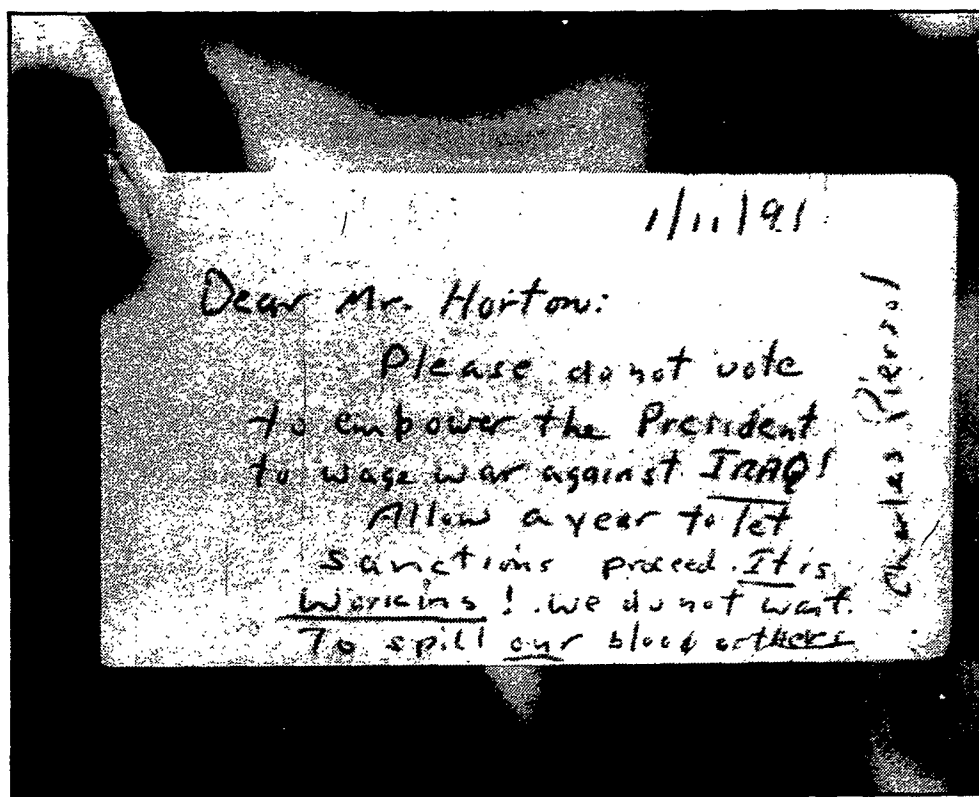 1/11/91
Dear Mr. Horton:
Please do not vote
to empower the President
to wage war against IRAQ!
Allow a year to let
sanctions proceed. It is
working! We do not want
To spill our blood or theirs
Charles Piersol